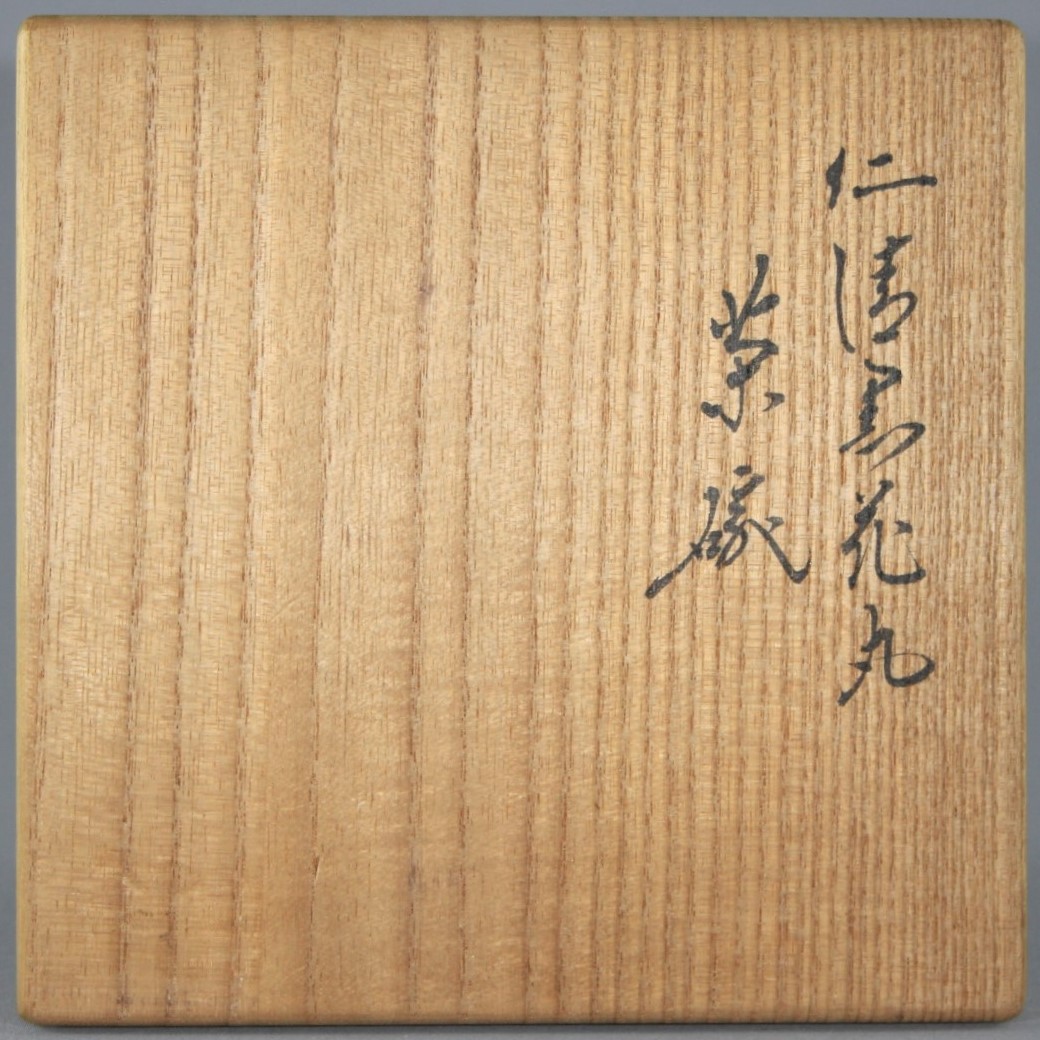 仁清花丸
茶碗